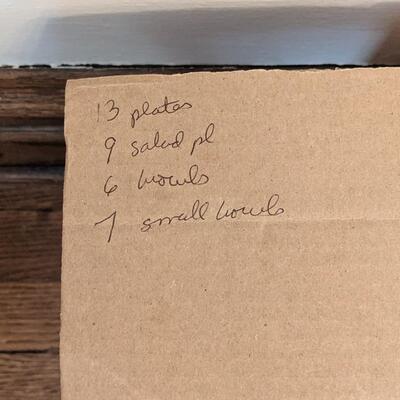 13 plates
9 salad pl
6 bowls
7 small bowls